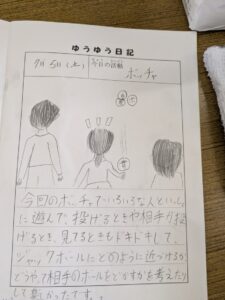 ゆうゆう日記
7月5日(土) 今日の活動 ボッチャ
今回のボッチャでいろいろな人といっしょ
に遊んで、投げるときや相手が投
げるとき、見てるときもドキドキして、
ジャックボールにどのように近づけるか
どうやって相手のボールをどかすかを考えたり
して楽しかったです。